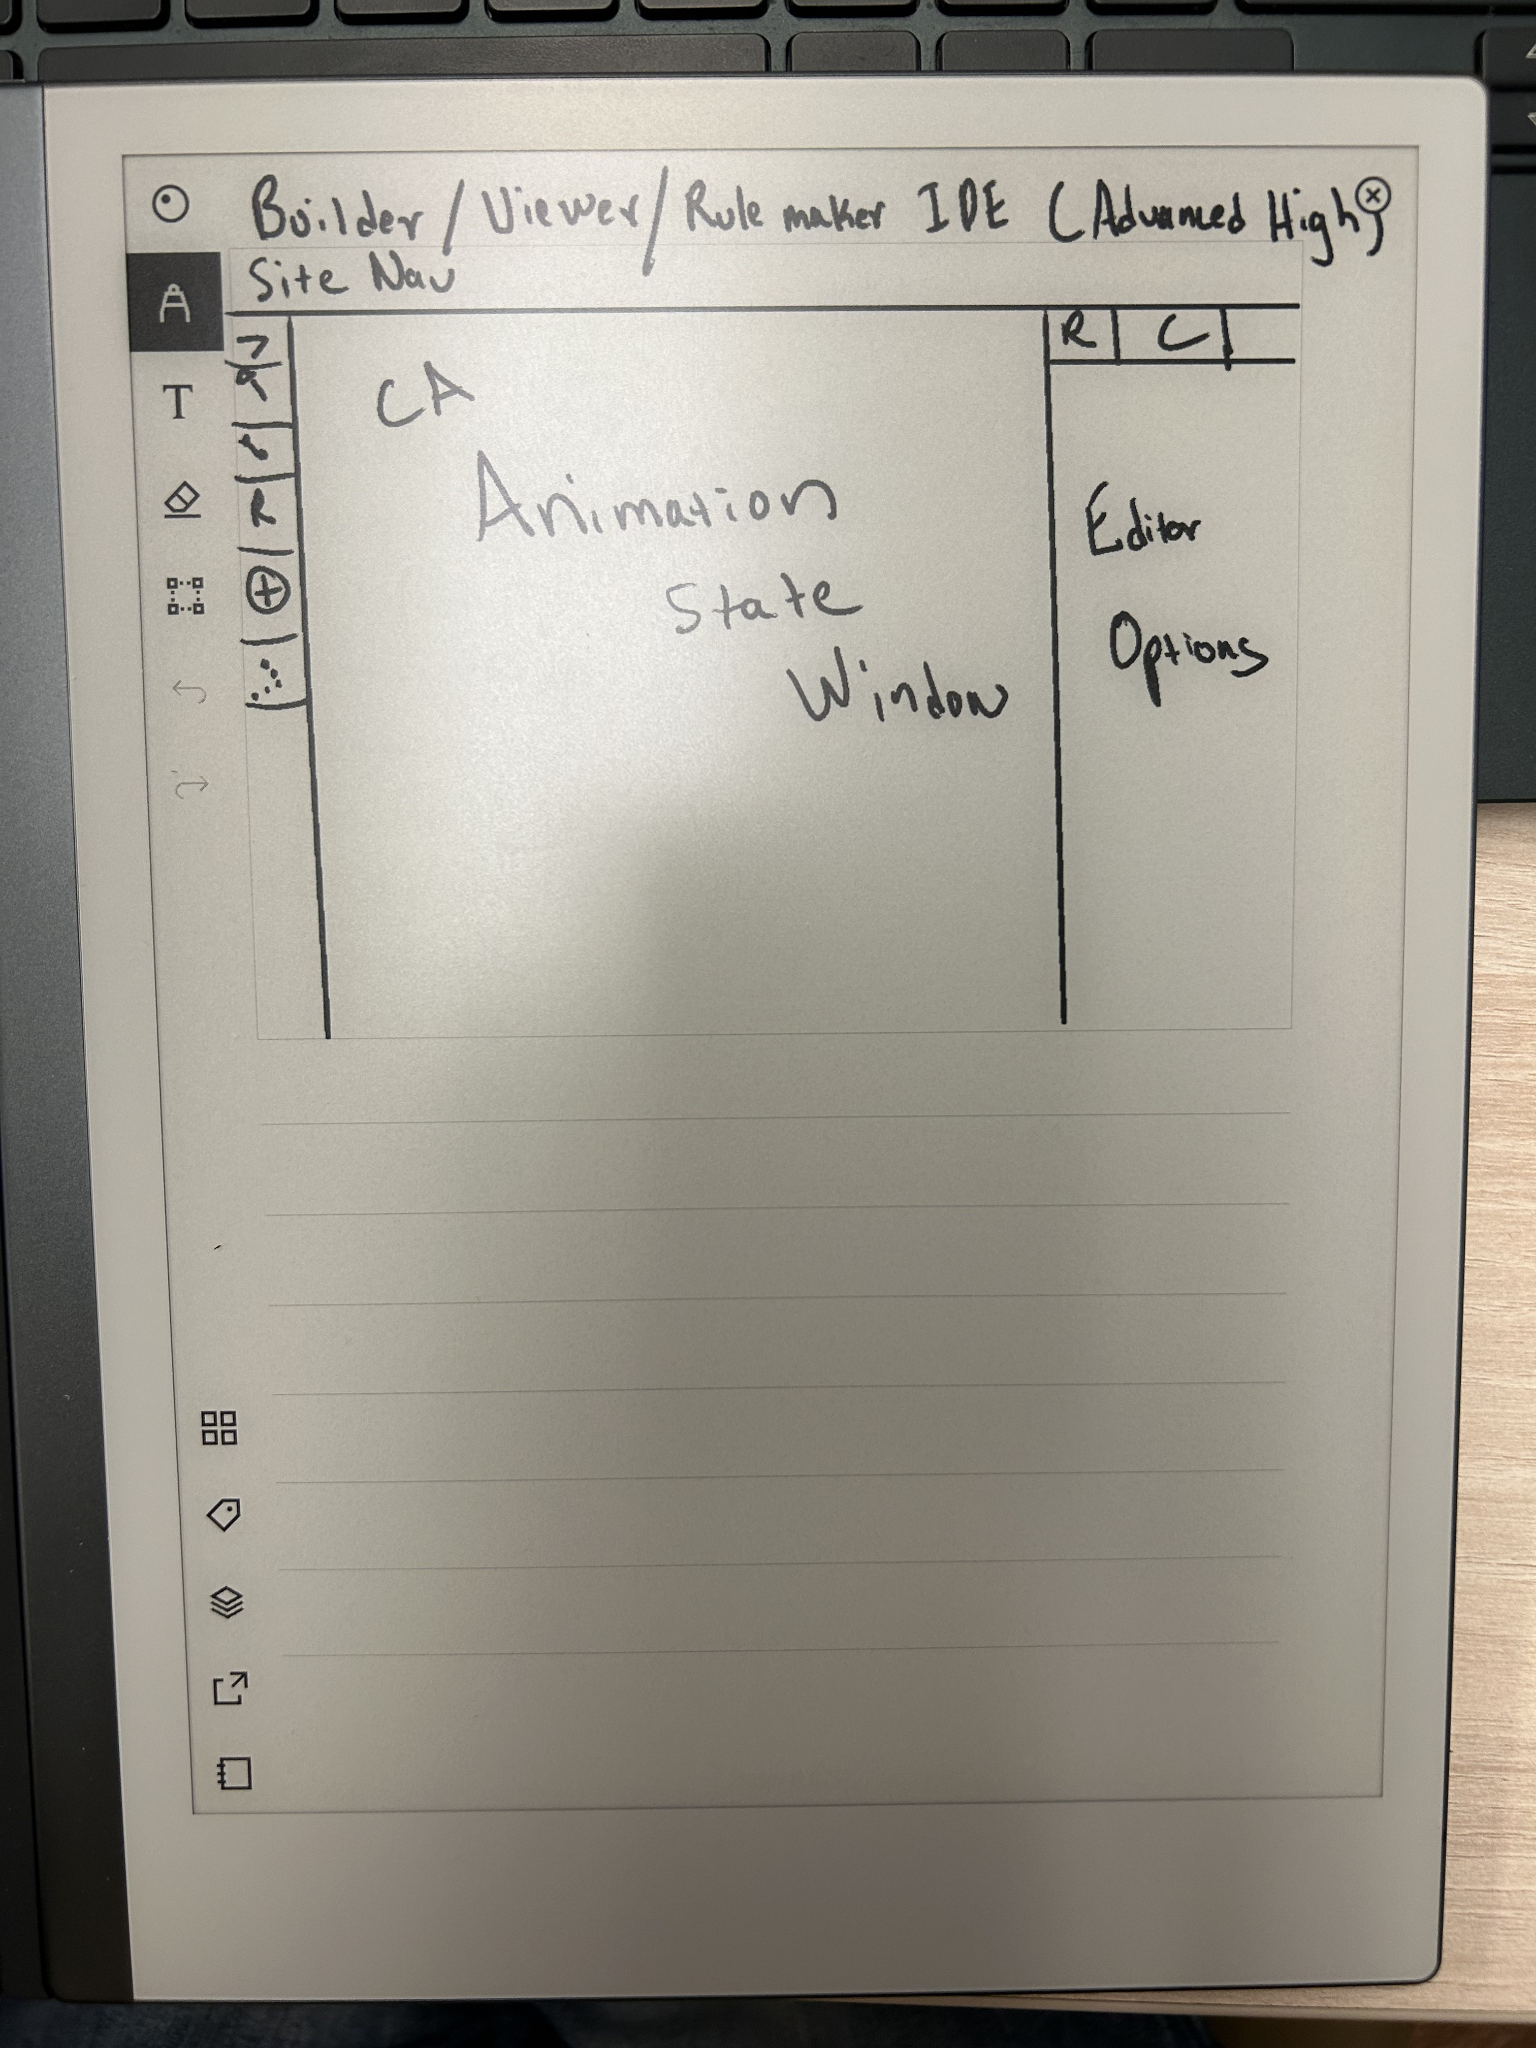 Builder / Viewer / Rule maker IDE (Advanced High)
Site Nav
R C
R
CA
Animation
State
Window
Editor
Options
T